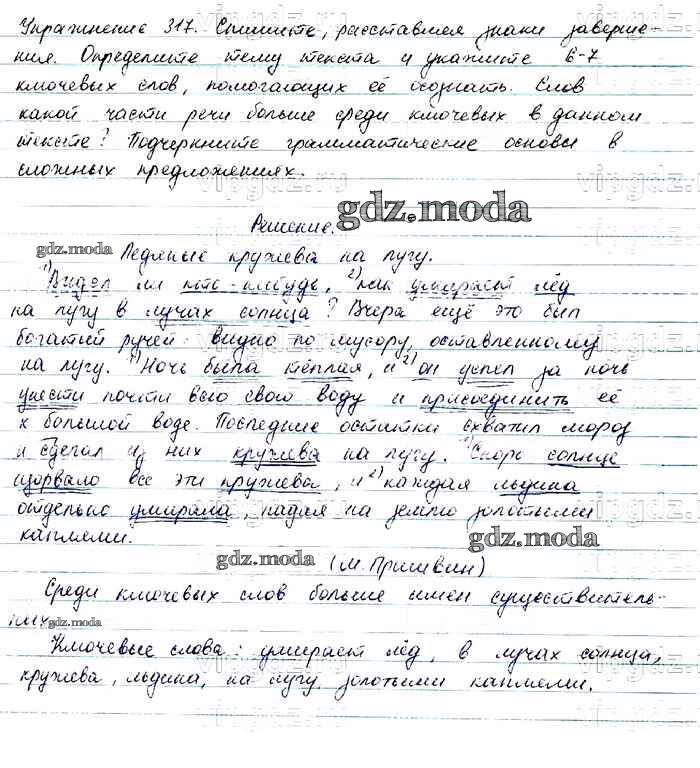 Упражнение 317. Спишите, расставляя знаки заверше-
ния. Определите тему текста и укажите 6-7
ключевых слов, помогающих её осознать. Слов
какой части речи больше среди ключевых в данном
тексте? Подчеркните грамматические основы в
сложных предложениях.
Решение. gdz.moda
gdz.moda Ледяные кружева на лугу.
1) Видел ли кто-нибудь, 2) как умирает лёд
на лугу в лучах солнца? Вчера ещё это был
богатый ручей: видно по мусору, оставленному
на лугу. 1) Ночь была тёплая, и 2) он успел за ночь
унести почти всю свою воду и присоединить её
к большой воде. Последние остатки схватил мороз
и сделал из них кружева на лугу. 1) Скоро солнце
изорвало все эти кружева, и 2) каждая льдина
отдельно умирала, падая на землю золотыми
каплями.
gdz.moda (М. Пришвин) gdz.moda
Среди ключевых слов больше имён существитель-
ных. gdz.moda
Ключевые слова: умирает лёд, в лучах солнца,
кружева, льдина, на лугу золотыми каплями.